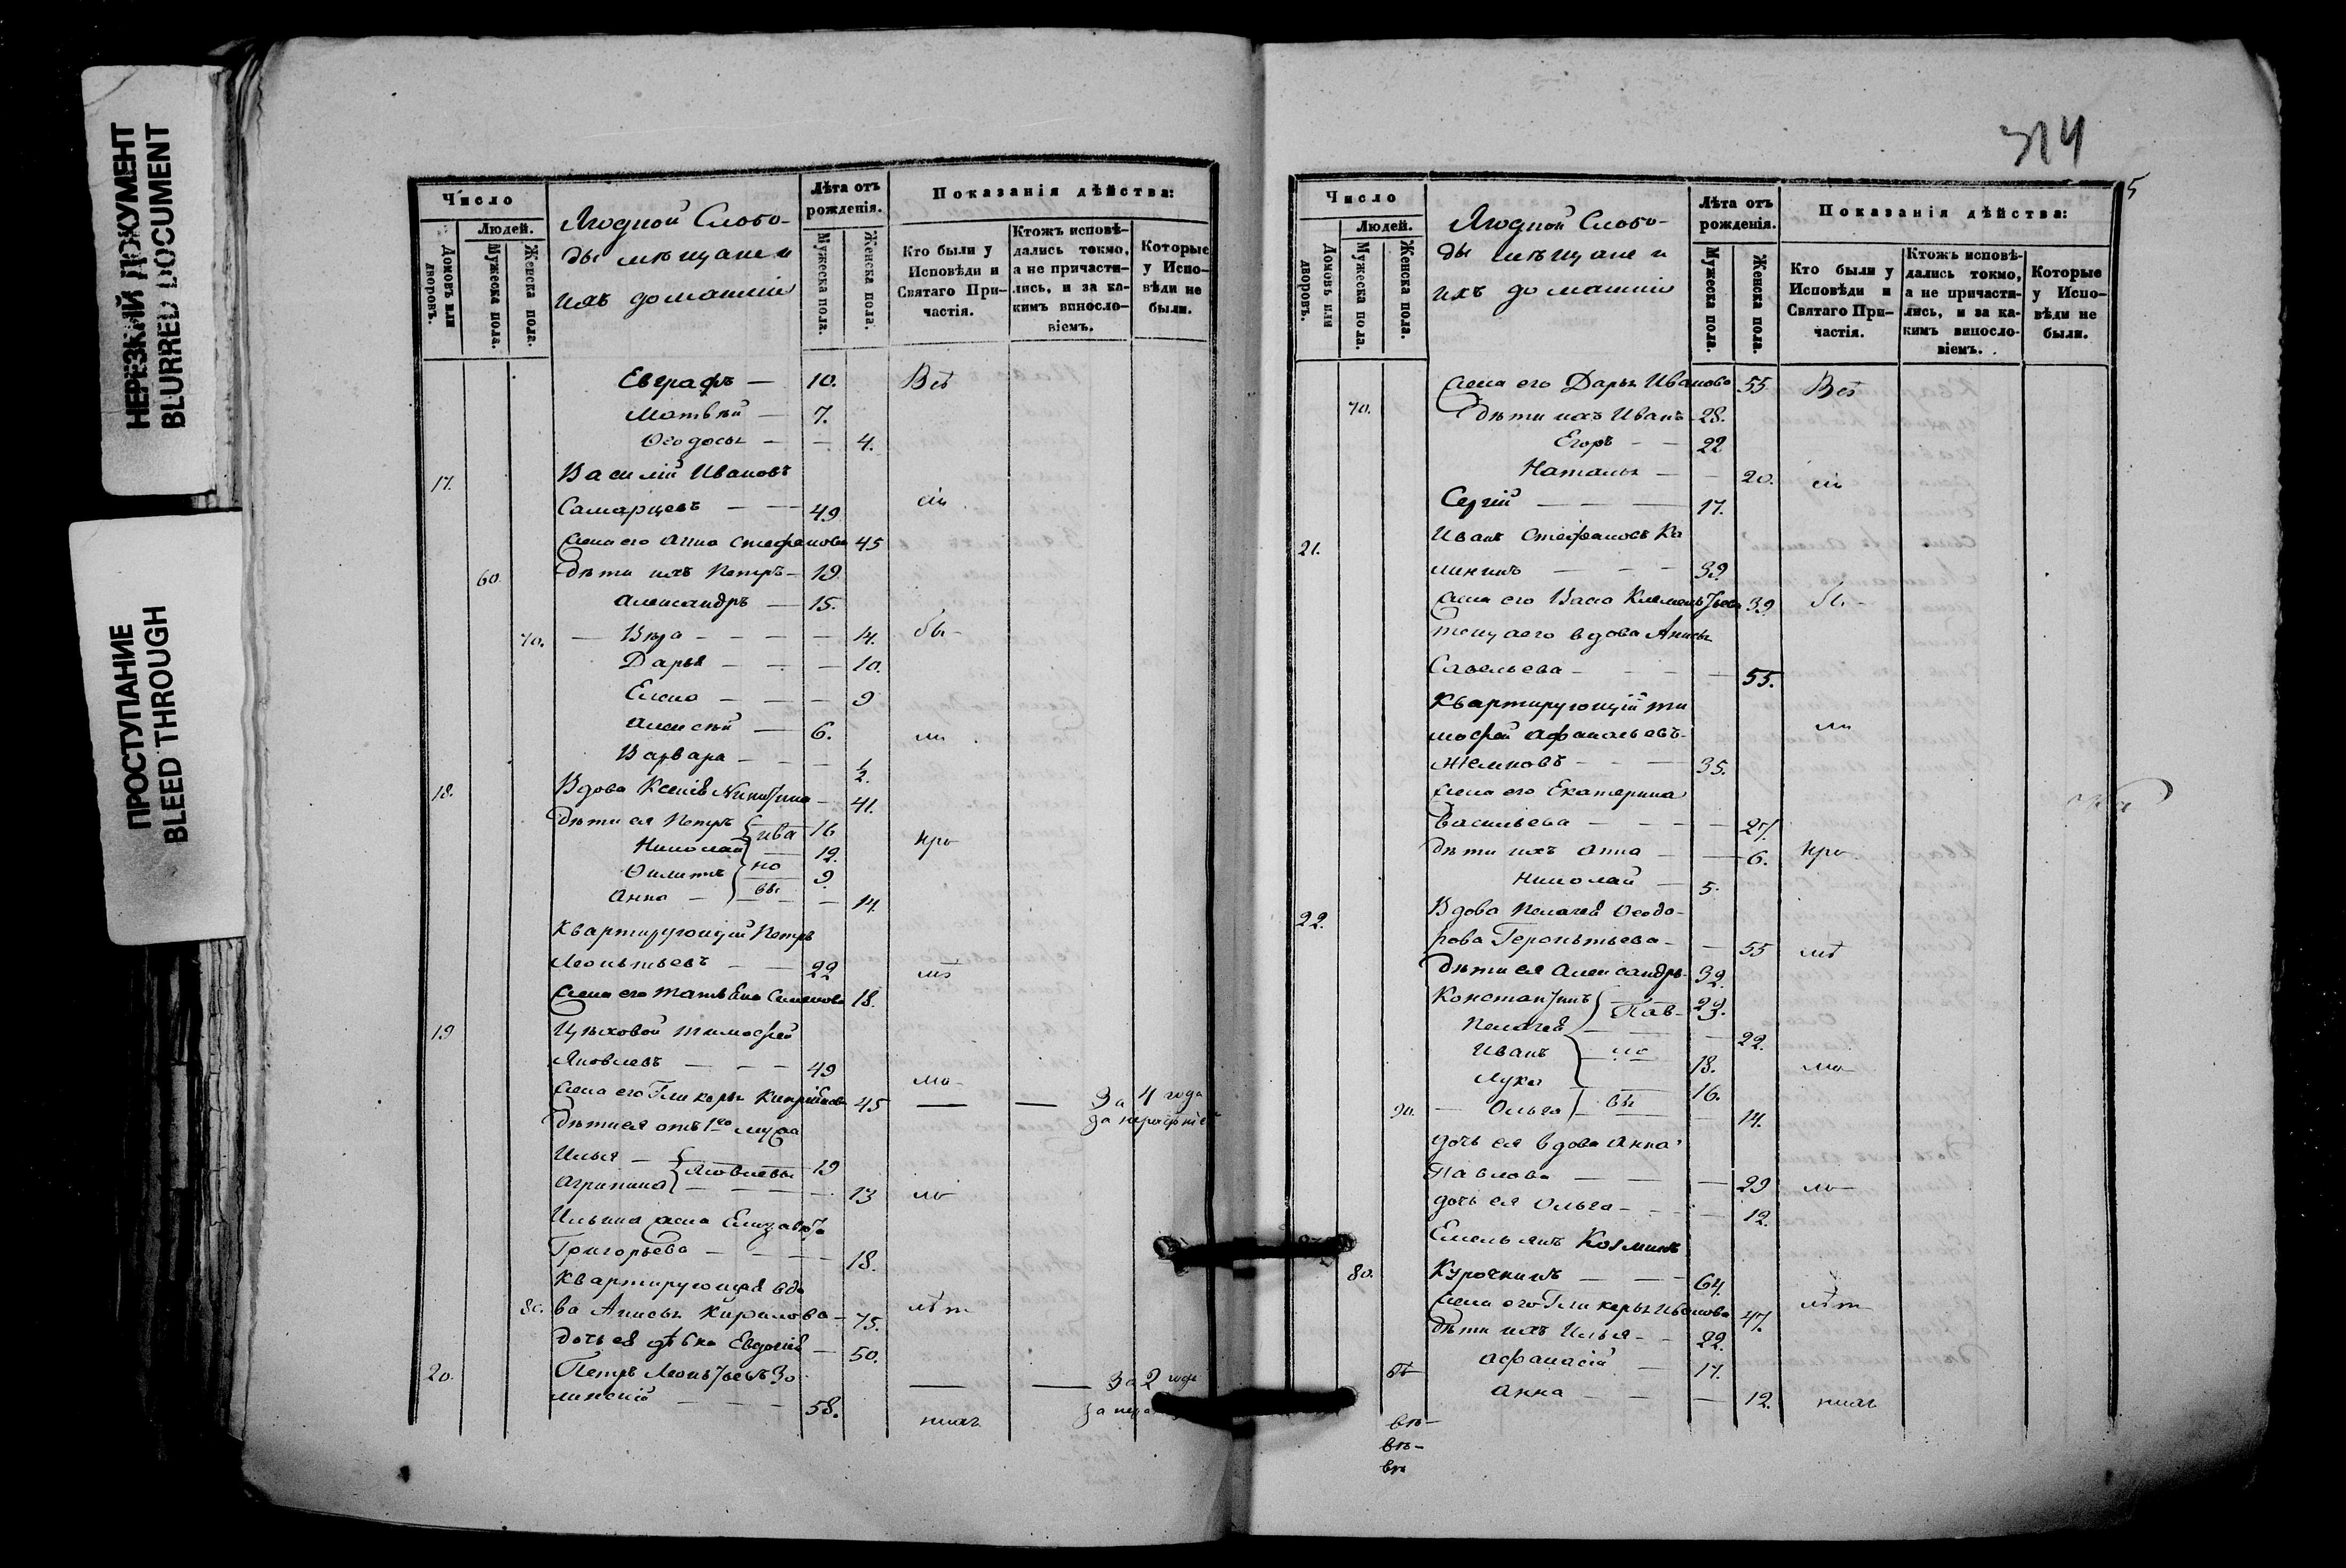 НЕРЕЗКИЙ ДОКУМЕНТ
BLURRED DOCUMENT
ПРОСТУПАНИЕ
BLEED THROUGH
Число
Людей.
Домовъ или дворовъ.
Мужеска пола.
Женска пола.
Ягодной Слобо-
ды мѣщане и
ихъ домашніе
Лѣта отъ рожденія.
Мужеска пола.
Женска пола.
Показанія дѣйства:
Кто были у Исповѣди и Святаго При- частія.
Ктожъ исповѣ- дались токмо, а не причасти- лись, и за ка- кимъ винсло- віемъ.
Которые у Испо- вѣди не были.
Евграфъ — 10. Всѣ
Матвѣй — 7.
Ѳеодосья — — 4.
17. Василій Ивановъ
Самарцевъ — — 49 сіи
Жена его Анна Стефанова 45
60. Дѣти ихъ Петръ — 19
Александръ — 15.
70. — Вѣра — — — — 14. бы-
Дарья — — — 10.
Елена — — — 9
Алексѣй — 6. ли
Варвара — — — 1/2.
18. Вдова Ксенія Никитина — 41.
Дѣти ея Петръ { Ива 16
Николай — 12. Испо
Филиппъ { но 9
Анна — вы — 14.
Квартирующій Петръ
Леонтьевъ — — 22
Жена его Татьяна Семенова 18.
19 Цѣховой Тимофей
Яковлевъ — — — 49
Жена его Гликерья Кипріянова 45 — — За 4 года
Дѣти ея отъ 1го мужа
Илья — { Яковлевы 19
Агрипина — — — 13
Ильина жена Елизавета
Григорьева — — — — 18.
Квартирующая вдо
80. ва Анисья Кирилова — 75.
дочь ея дѣвка Евдокія — 50.
20. Петръ Леонтьевъ Зо
линскій — — — 58. — — За 2 года
314
5
Число
Людей.
Домовъ или дворовъ.
Мужеска пола.
Женска пола.
Ягодной Слобо-
ды мѣщане и
ихъ домашніе
Лѣта отъ рожденія.
Мужеска пола.
Женска пола.
Показанія дѣйства:
Кто были у Исповѣди и Святаго При- частія.
Ктожъ исповѣ- дались токмо, а не причасти- лись, и за ка- кимъ винсло- віемъ.
Которые у Испо- вѣди не были.
Жена его Дарья Иванова 55 Всѣ
70. Дѣти ихъ Иванъ — 28.
Егоръ — — 22
Наталья — — 20. сіи
Сергій — — — 17.
21. Иванъ Стефановъ Ка
лининъ — — — 39
Жена его Васса Клементьева 39 бы-
теща его вдова Анисья
Савельева — — — — 55.
Квартирующій Ти
мофей Афанасьевъ ли
— — — 35.
Жена его Екатерина
Васильева — — — — 27.
Дѣти ихъ Анна — — 6.
Николай — 5.
22. Вдова Пелагея Ѳеодо-
рова Геронтьева — — 55
Дѣти ея Александръ — 32.
Константинъ { Пав- 29.
Пелагея — — 22.
Иванъ { ло 18.
Лука 16.
90. — Ольга { вы — 14.
дочь ея вдова Анна
Павлова — — — 29
дочь ея Ольга — — — 12.
Емельянъ Козминъ
80. Курочкинъ — — — 64.
Жена его Гликерья Иванова 47.
Дѣти ихъ Илья — — 22.
Афанасій — 17.
Анна — — — 12.